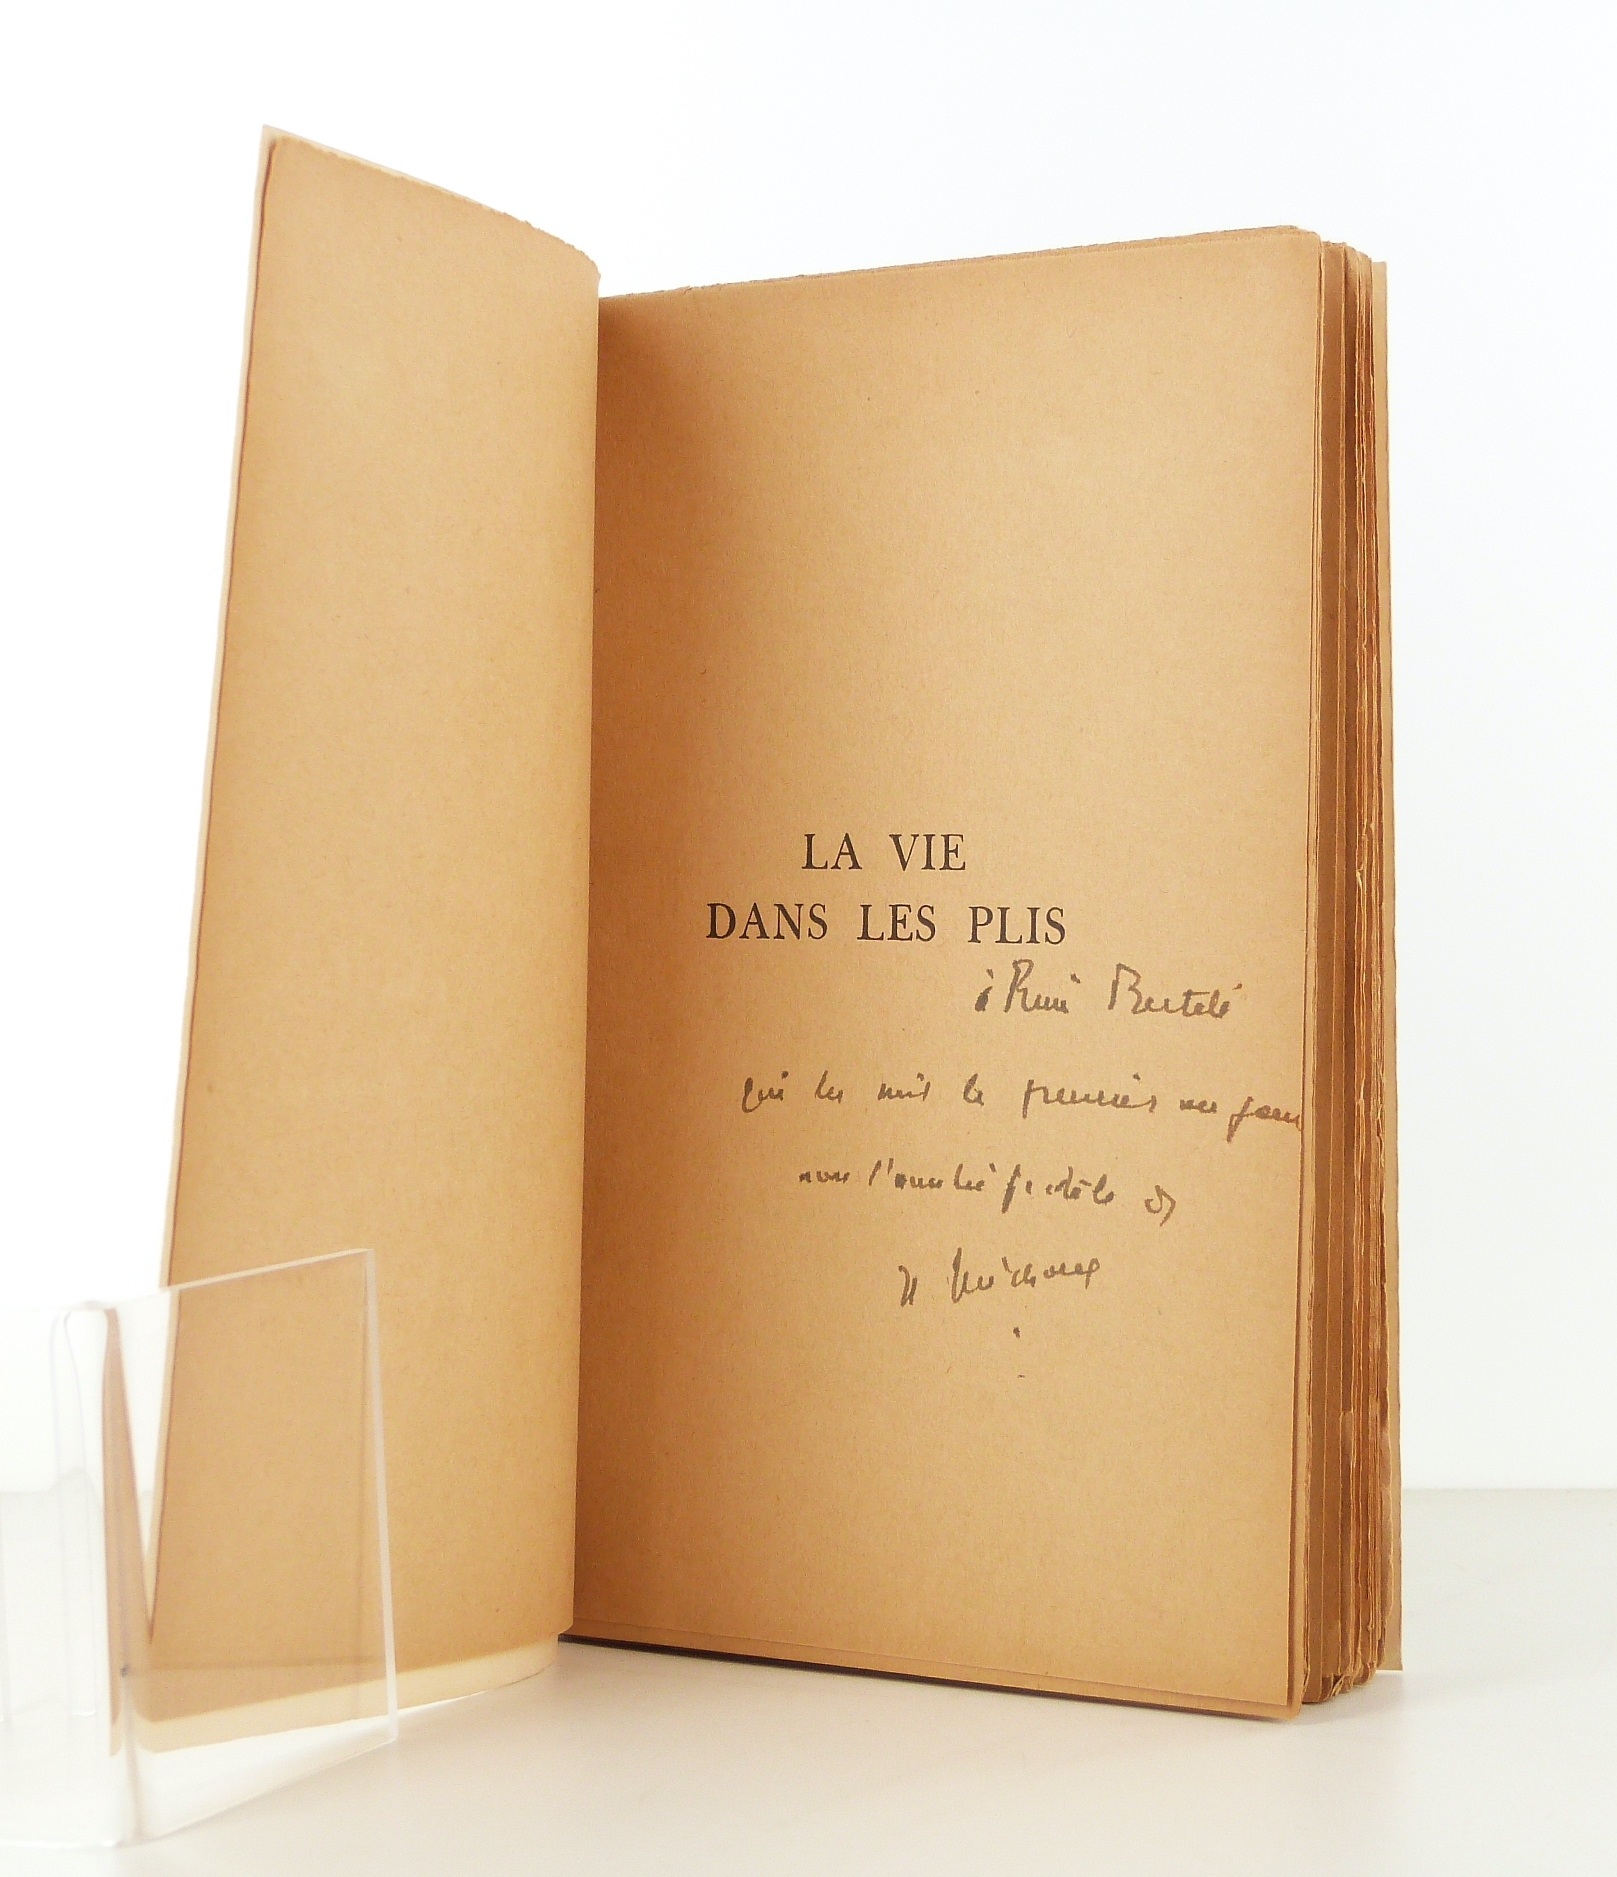 LA VIE
DANS LES PLIS
à René Bertelé
qui les mit le premier au jour
avec l'amitié fidèle de
H Michaux